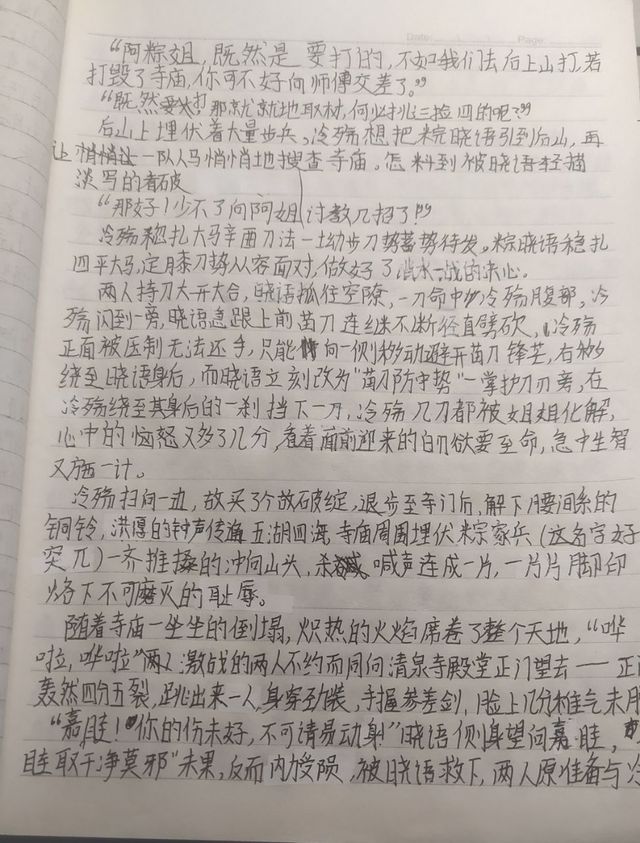 Date: Page:
“阿粽姐,既然是要打的,不如我们去后上山打,若
打毁了寺庙,你可不好向师傅交差了。”
“既然要打,那就就地取材,何必挑三捡四的呢?”
后山上埋伏着大量步兵。冷殇想把粽晓语引到后山,再
让一队人马悄悄地搜查寺庙。怎料到被晓语轻描
淡写的看破
“那好!少不了向阿姐讨教几招了!”
冷殇稳扎大马辛酉刀法一幼步刀势蓄势待发。粽晓语稳扎
四平大马,定膝刀势从容面对,做好了一战的决心。
两人持刀大开大合,晓语抓住空隙,一刀命中冷殇腹部,冷
殇闪到一旁,晓语急跟上前苗刀连续不断径直劈砍,冷殇
正面被压制无法还手,只能向一侧移动避开苗刀锋芒,右移
绕至晓语身后,而晓语立刻改为“苗刀防中势”一掌护刀刃旁,在
冷殇绕至其身后的一刹挡下一刀,冷殇几刀都被姐姐化解,
心中的恼怒又多了几分,看着面前迎来的白刃欲要至命,急中生智
又施一计。
冷殇扫向一边,故买了个故破绽,退步至寺门后,解下腰间系的
铜铃,洪厚的钟声传遍五湖四海,寺庙周围埋伏粽家兵(这名字好
突兀)一齐推搡的冲向山头,杀喊声连成一片,一片片脚印
烙下不可磨灭的耻辱。
随着寺庙一坐坐的倒塌,炽热的火焰席卷了整个天地,“哗
啦,哗啦”两人激战的两人不约而同向清泉寺殿堂正门望去——正
轰然四分五裂,跳出来一人,身穿劲装,手握参差剑,脸上几分稚气未
“嘉眭!你的伤未好,不可请易动身!”晓语侧身望向嘉眭,
眭取干净莫邪”未果,反而内受损,被晓语救下,两人原准备与冷